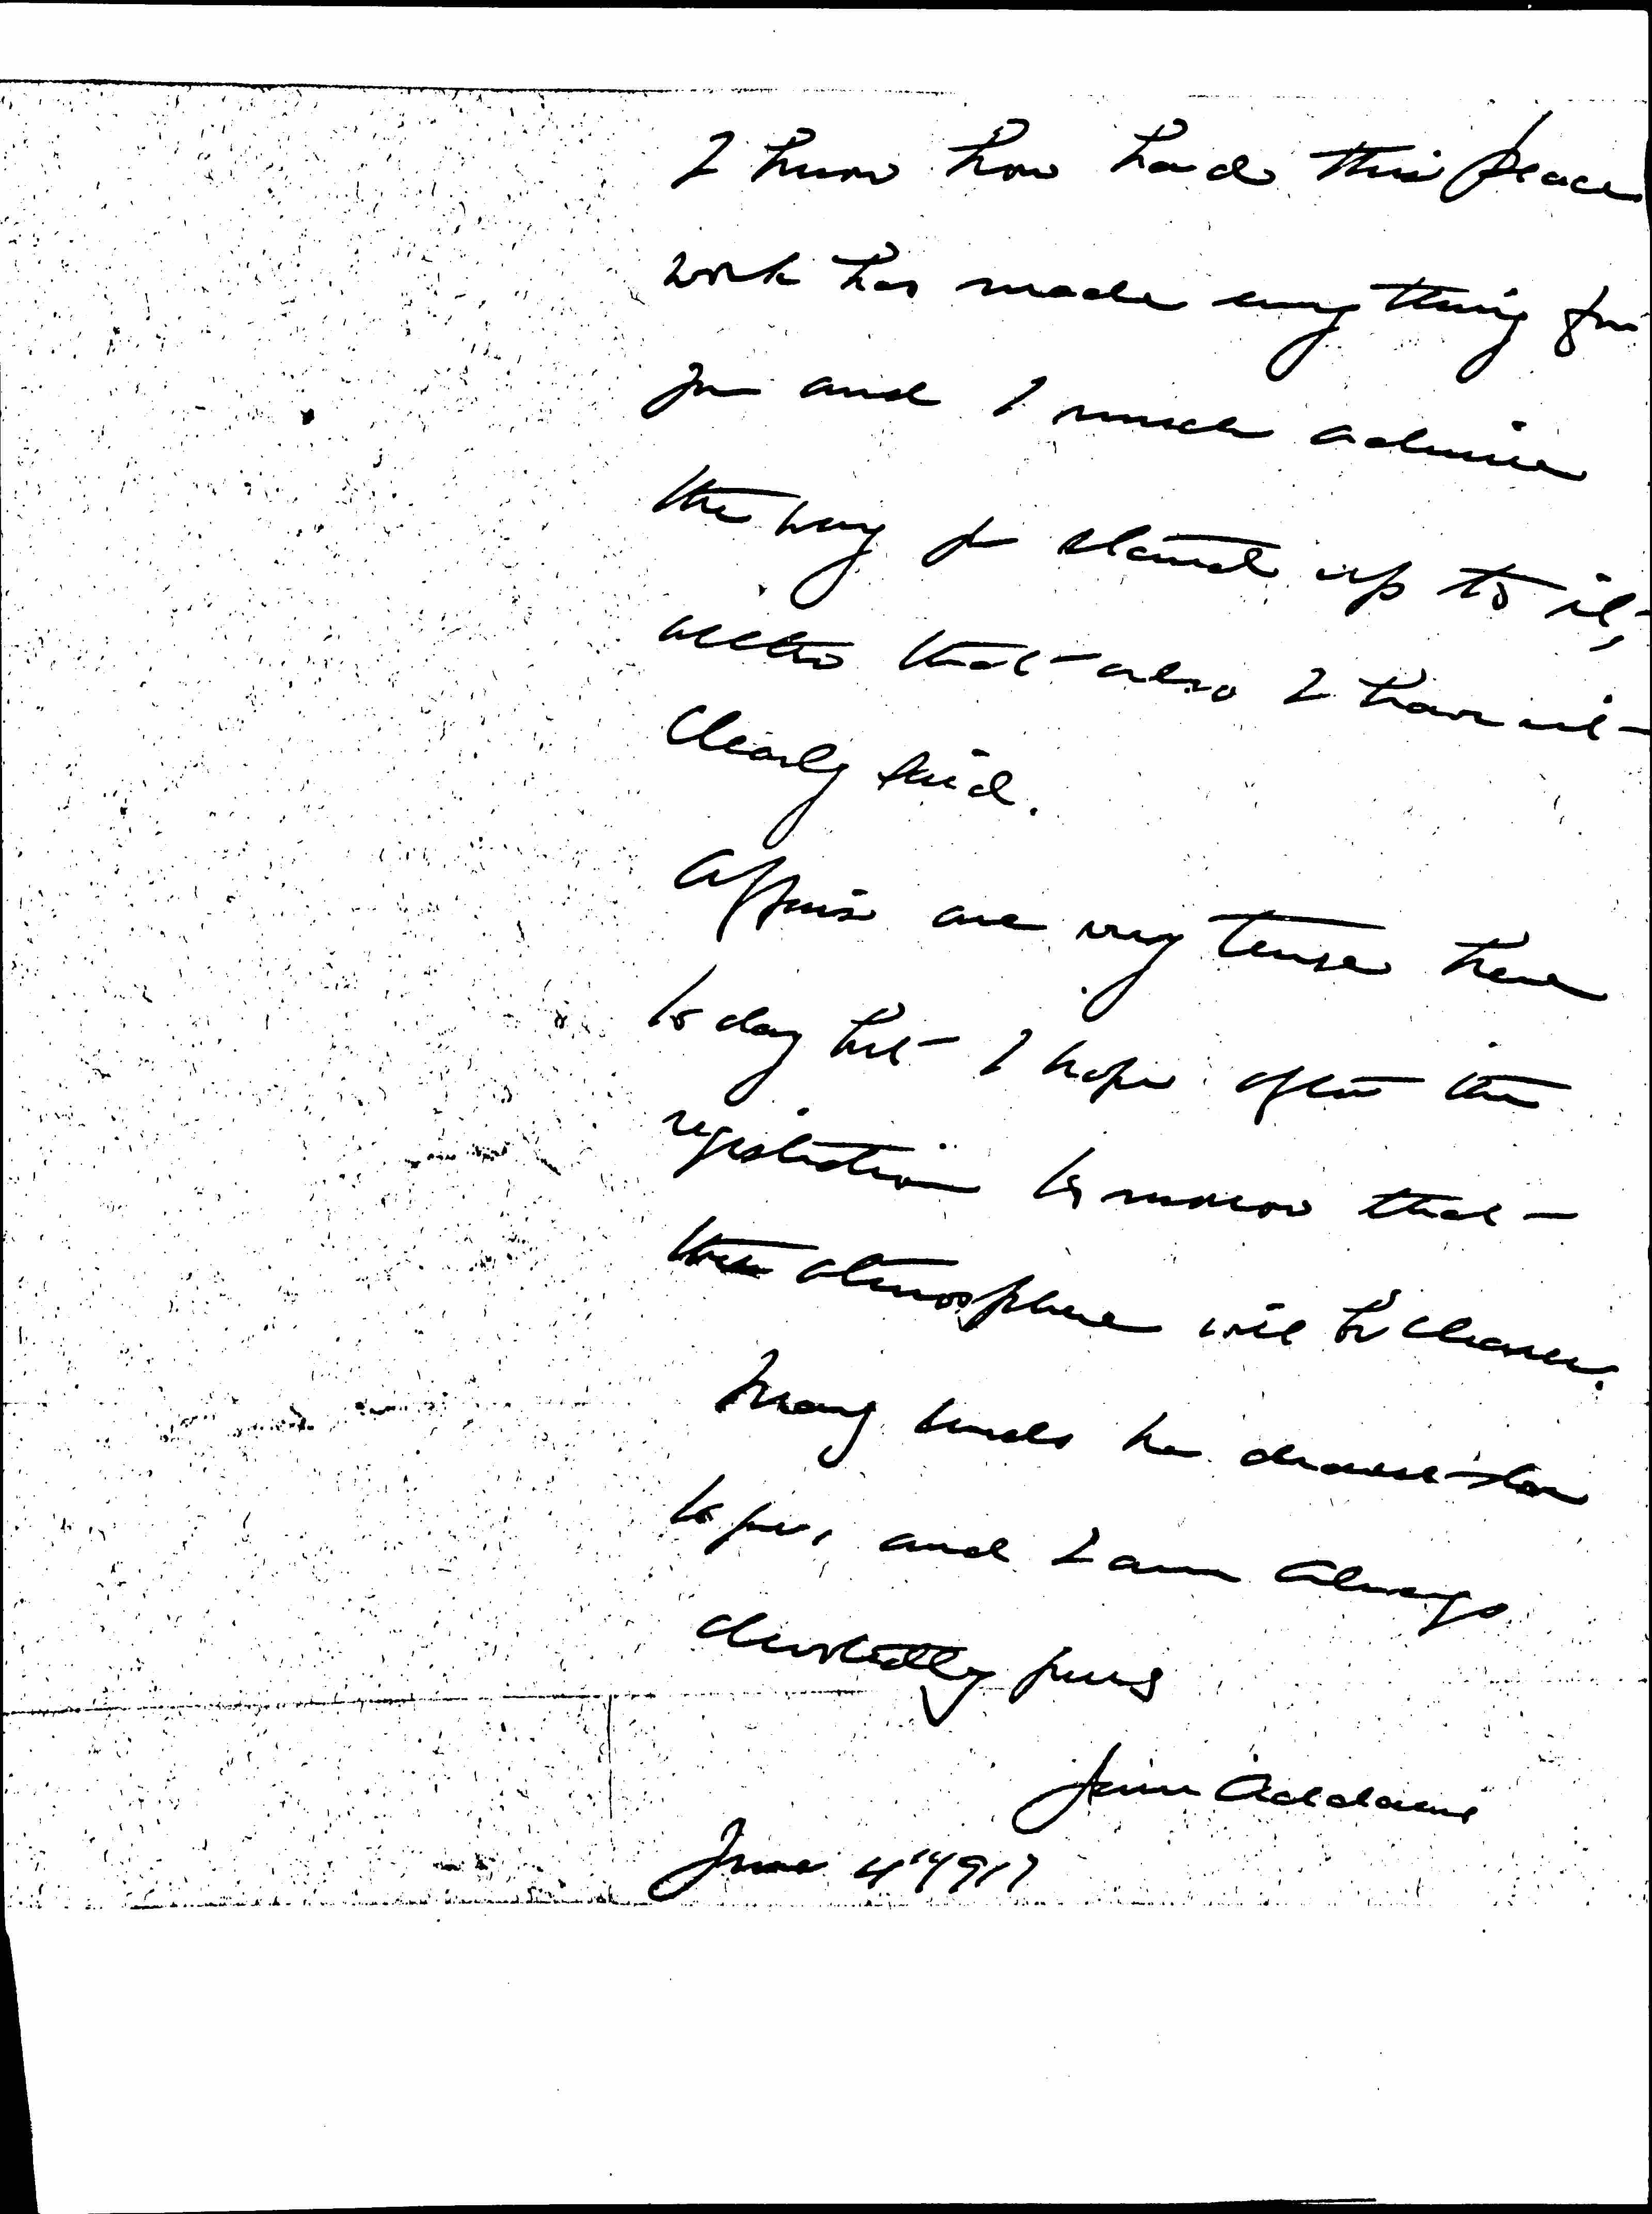 I know how hard this peace
work has made every thing for
you and I much admire
the way you stand up to it,
that also I have not
clearly said.
Affairs are very tense here
to day but I hope after the
registration to morrow that
the atmosphere will be clearer.
Many friends here send love
to you, and I am always
devotedly yours
Jane Addams
June 4" 1917